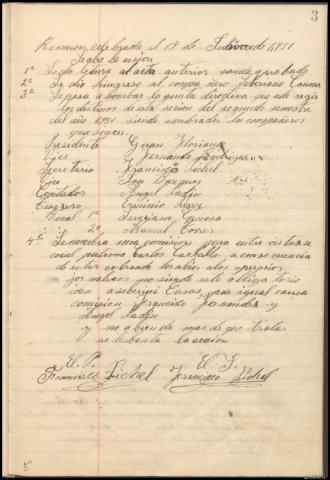 3
Reunion celebrada el 19 de 1931
Se abre la sesion
1º Se da lectura al acta anterior siendo aprobado
2º Se dio hingreso al compañero
3º Se pasa a nombrar la junta directiva que ade regir
los destinos de esta secion del segundo semestre
del año 1931 siendo nombrados los compañeros
que siguen
Presidente Juan Floriano
Vice Fernando Rodriguez
Secretario Francisco Pichel
Vice Jose Vazquez
Contador Angel Padin
Tesorero Erminio Perez
Vocal 1º Serguiano Canosa
2º Manuel Torres
4º Se nombra una comision para entre vistarse
con el patrono Carlos Carballo, a consecuencia
de estar cobrando los
jornaleros no siendo esto obligatorio
Casas, por igual causa
comision, Francisco Fernandez y
Angel Padin
y no abiendo mas de que tratar
se lebanta la sesion
El P. El S.
Francisco Pichel Francisco Pichel